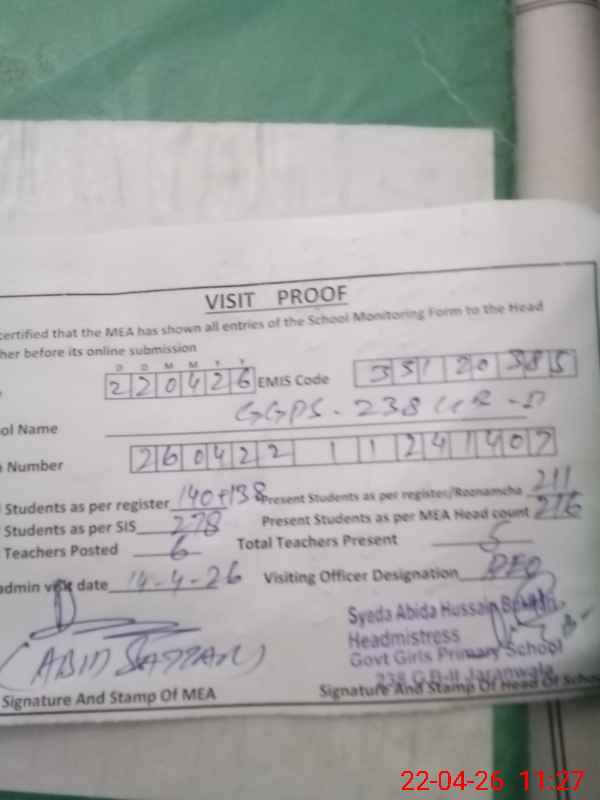 VISIT PROOF
certified that the MEA has shown all entries of the School Monitoring Form to the Head
her before its online submission
D D M M Y Y
220426 EMIS Code 33120385
ol Name GGPS - 238
Number 260422 11241407
Students as per register 140+138 Present Students as per register/Roznamcha 211
Students as per SIS 278 Present Students as per MEA Head count 216
Teachers Posted 6 Total Teachers Present 5
admin visit date 14-4-26 Visiting Officer Designation
Syeda Abida Hussain
Headmistress
(ABID
Govt Girls Primary School
238 G.B-II Jaranwala
Signature And Stamp Of MEA Signature And Stamp Of Head Of School
22-04-26 11:27